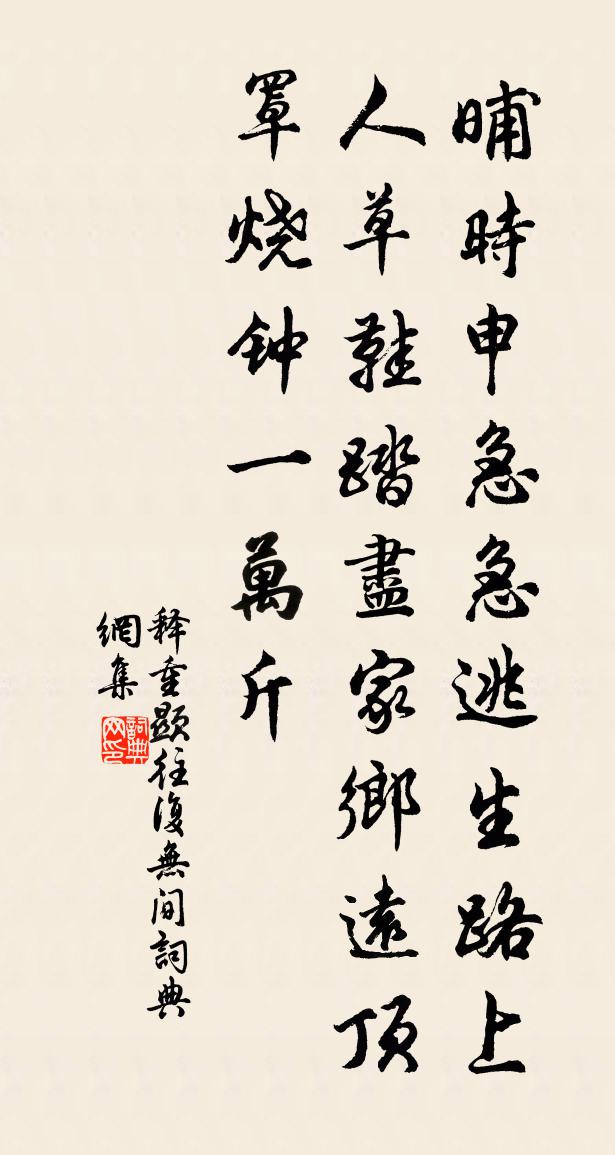 晡時申急急逃生路上
人草鞋踏盡家鄉遠頂
罩烧钟一萬斤
释重顯往復無间詞典
網集
詞典网印